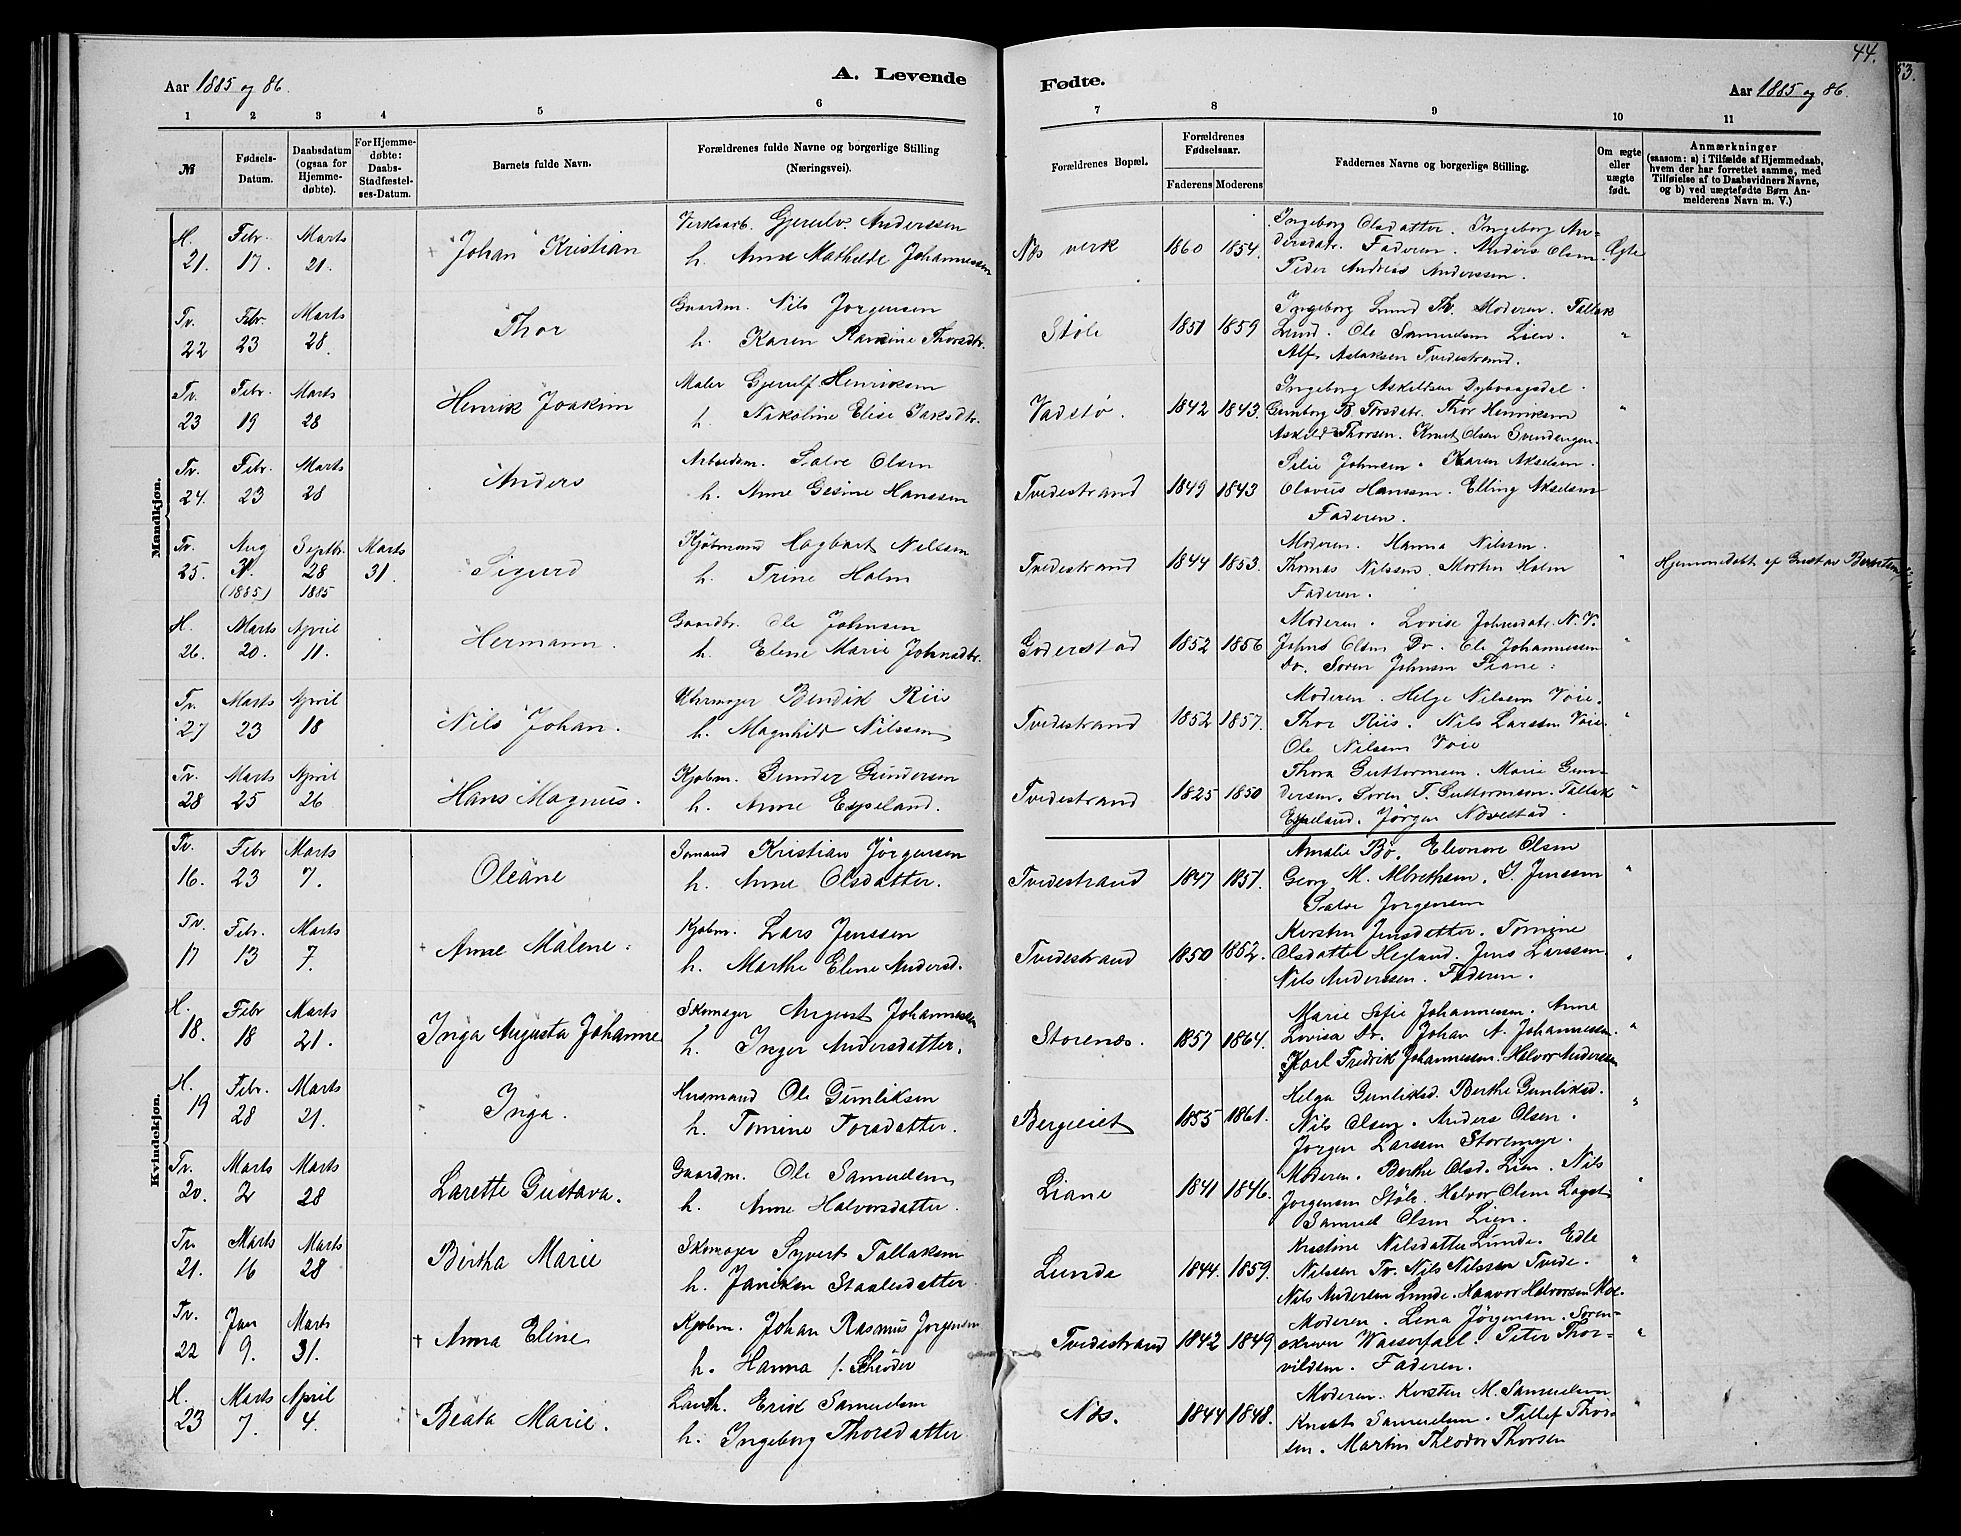 44.
53.
Aar 1885 og 86.
A. Levende
Fødte.
Aar 1885 og 86.
1 2 3 4 5 6 7 8 9 10 11
№
Fødsels-
Datum.
Daabsdatum
(ogsaa for
Hjemme-
døbte).
For Hjemme-
døbte:
Daabs-
Stadfæstel-
ses-Datum.
Barnets fulde Navn.
Forældrenes fulde Navne og borgerlige Stilling
(Næringsvei).
Forældrenes Bopæl.
Forældrenes
Fødselsaar.
Faderens Moderens
Faddernes Navne og borgerlige Stilling.
Om ægte
eller
uægte
født.
Anmærkninger
(saasom: a) i Tilfælde af Hjemmedaab,
hvem der har forrettet samme, med
Tilføielse af to Daabsvidners Navne,
og b) ved uægtefødte Børn An-
melderens Navn m. V.)
Mandkjøn.
H. Febr. Marts
21. 17. 21.
Johan Kristian
Verksarb. Gjerulv Anderssen
h. Anne Mathilde Johannessen
Næs verk 1860 1854.
Ingeborg Olsdatter. Ingeborg An-
dersdatr. Faderen. Anders Olsen
Peder Andreas Anderssen.
Ægte
Tv. Febr. Marts
22 23 28.
Thor
Gaardm. Nils Jorgensen
h. Karen Ramine Thorsdtr.
Støle 1851 1859
Ingeborg Lund Tv. Moderen. Tallak
Lund. Ole Samuelsen Lien.
Alf Aslaksen Tvedestrand.
"
Tv. Febr. Marts
23 19 28
Henrik Joakim
Maler Gjerulf Henriksen
h. Nikoline Elise Isaksdtr.
Vadstø. 1842 1843.
Ingeborg Askildsen Dybvaagsdal.
Gunborg B. Torsdatr. Thor Henriksen
Askild Thorsen. Knut Olsen Svendengen.
"
Tv. Febr. Marts
24. 23 28
Anders
Arbeidsm. Salve Olsen
h. Anne Gesine Hanssen
Tvedestrand 1849 1843
Silie Johnsen. Karen Akselsen.
Olavus Hanssen. Elling Akselsen
Faderen.
"
Tv. Aug Septbr. Marts
25. 31. 28 31.
(1885) 1885
Sigurd
Kjøbmand Hagbart Nilssen
h. Trine Holm
Tvedestrand 1844 1853.
Moderen. Hanna Nilssen.
Thomas Nilssen. Morten Holm
Faderen.
"
Hjemmedøbt af Gustav Berntsen
H. Marts April
26. 20. 11.
Hermann.
Gaardbr. Ole Johnsen
h. Elene Marie Johnsdtr.
Goderstad 1852 1856
Moderen. Lovise Johnsdatr. N. V.
Johns Olsen Do. Ole Johannessen
do. Soren Johnsen Fiane.
"
Tv. Marts April
27 23 18
Nils Johan.
Uhrmager Bendik Riis
h. Magnhild Nilssen
Tvedestrand 1852 1857.
Moderen. Helge Nilssen Voie.
Thor Riis. Nils Larssen Voie
Ole Nilssen Voie
"
Tv. Marts April
28 25 26
Hans Magnus.
Kjøbm. Gunder Gundersen
h. Anne Espeland.
Tvedestrand 1825 1850
Thora Guttormsen. Marie Gun-
dersen. Soren T. Guttormsen. Tallak
Espeland. Jörgen Navestad.
"
Kvindekjøn.
Tv. Febr Marts
16. 23 7.
Oleane
Sømand Kristian Jörgensen
h. Anne Olsdatter.
Tvedestrand 1847 1851.
Amalie Bø. Eleonore Olsen
Georg M. Albrethsen. S. Jenssen
Salve Jorgensen
"
Tv. Febr. Marts
17 13 7.
Anne Malene.
Kjøbm. Lars Jenssen
h. Marthe Elene Andersd.
Tvedestrand 1850 1852.
Kersten Jensdatter. Tomine
Olsdatter Hegland. Jens Larssen
Nils Anderssen. Faderen.
"
H. Febr Marts
18. 18 21.
Inga Augusta Johanne
Skomager August Johannessen
h. Inger Andersdatter.
Storenæs. 1857 1864.
Marie Sofie Johannessen. Anna
Lovisa do. Johan A. Johannessen.
Karl Fredrik Johannessen. Halvor Anderssen
"
H. Febr. Marts
19 28 21.
Inga.
Husmand Ole Gunliksen
h. Tomine Torsdatter.
Bergseiet 1855 1861.
Helga Gunliksd. Berthe Gunliksd.
Nils Olsen. Anders Olsen.
Jorgen Larssen Storemyr.
"
Tv. Marts Marts
20. 2 28
Larette Gustava.
Gaardm. Ole Samuelsen
h. Anne Halvorsdatter.
Liane 1841 1846.
Moderen. Berthe Olsd. Lien. Nils
Jorgensen Støle. Halvor Olsen
Samuel Olsen Lien.
"
Tv. Marts Marts
21. 16 28
Bertha Marie
Skomager Syvert Tallaksen
h. Janiken Staalesdatter
Lunde 1844. 1859.
Kristine Nilsdatter Lunde. Edle
Nilssen Tv. Nils Nilssen Tvede.
Nils Andersen Lunde. Haavor Halvorsen Moe
"
Tv. Jan Marts
22 9. 31.
Anna Eline
Kjøbm. Johan Rasmus Jorgensen
h. Hanna f. Schröder
Tvedestrand 1842 1849
Moderen. Lena Jörgensen. Soren-
skriver Wasserfall. Peter Thor-
vildsen. Faderen.
"
H. Marts April
23 7. 4.
Beata Marie.
Landh. Erik Samuelsen
h. Ingeborg Thorsdatter
Næs. 1844 1848.
Moderen. Kirsten M. Samuelsen
Knut Samuelsen. Tellef Thor-
sen. Martin Theodor Thorsen
"